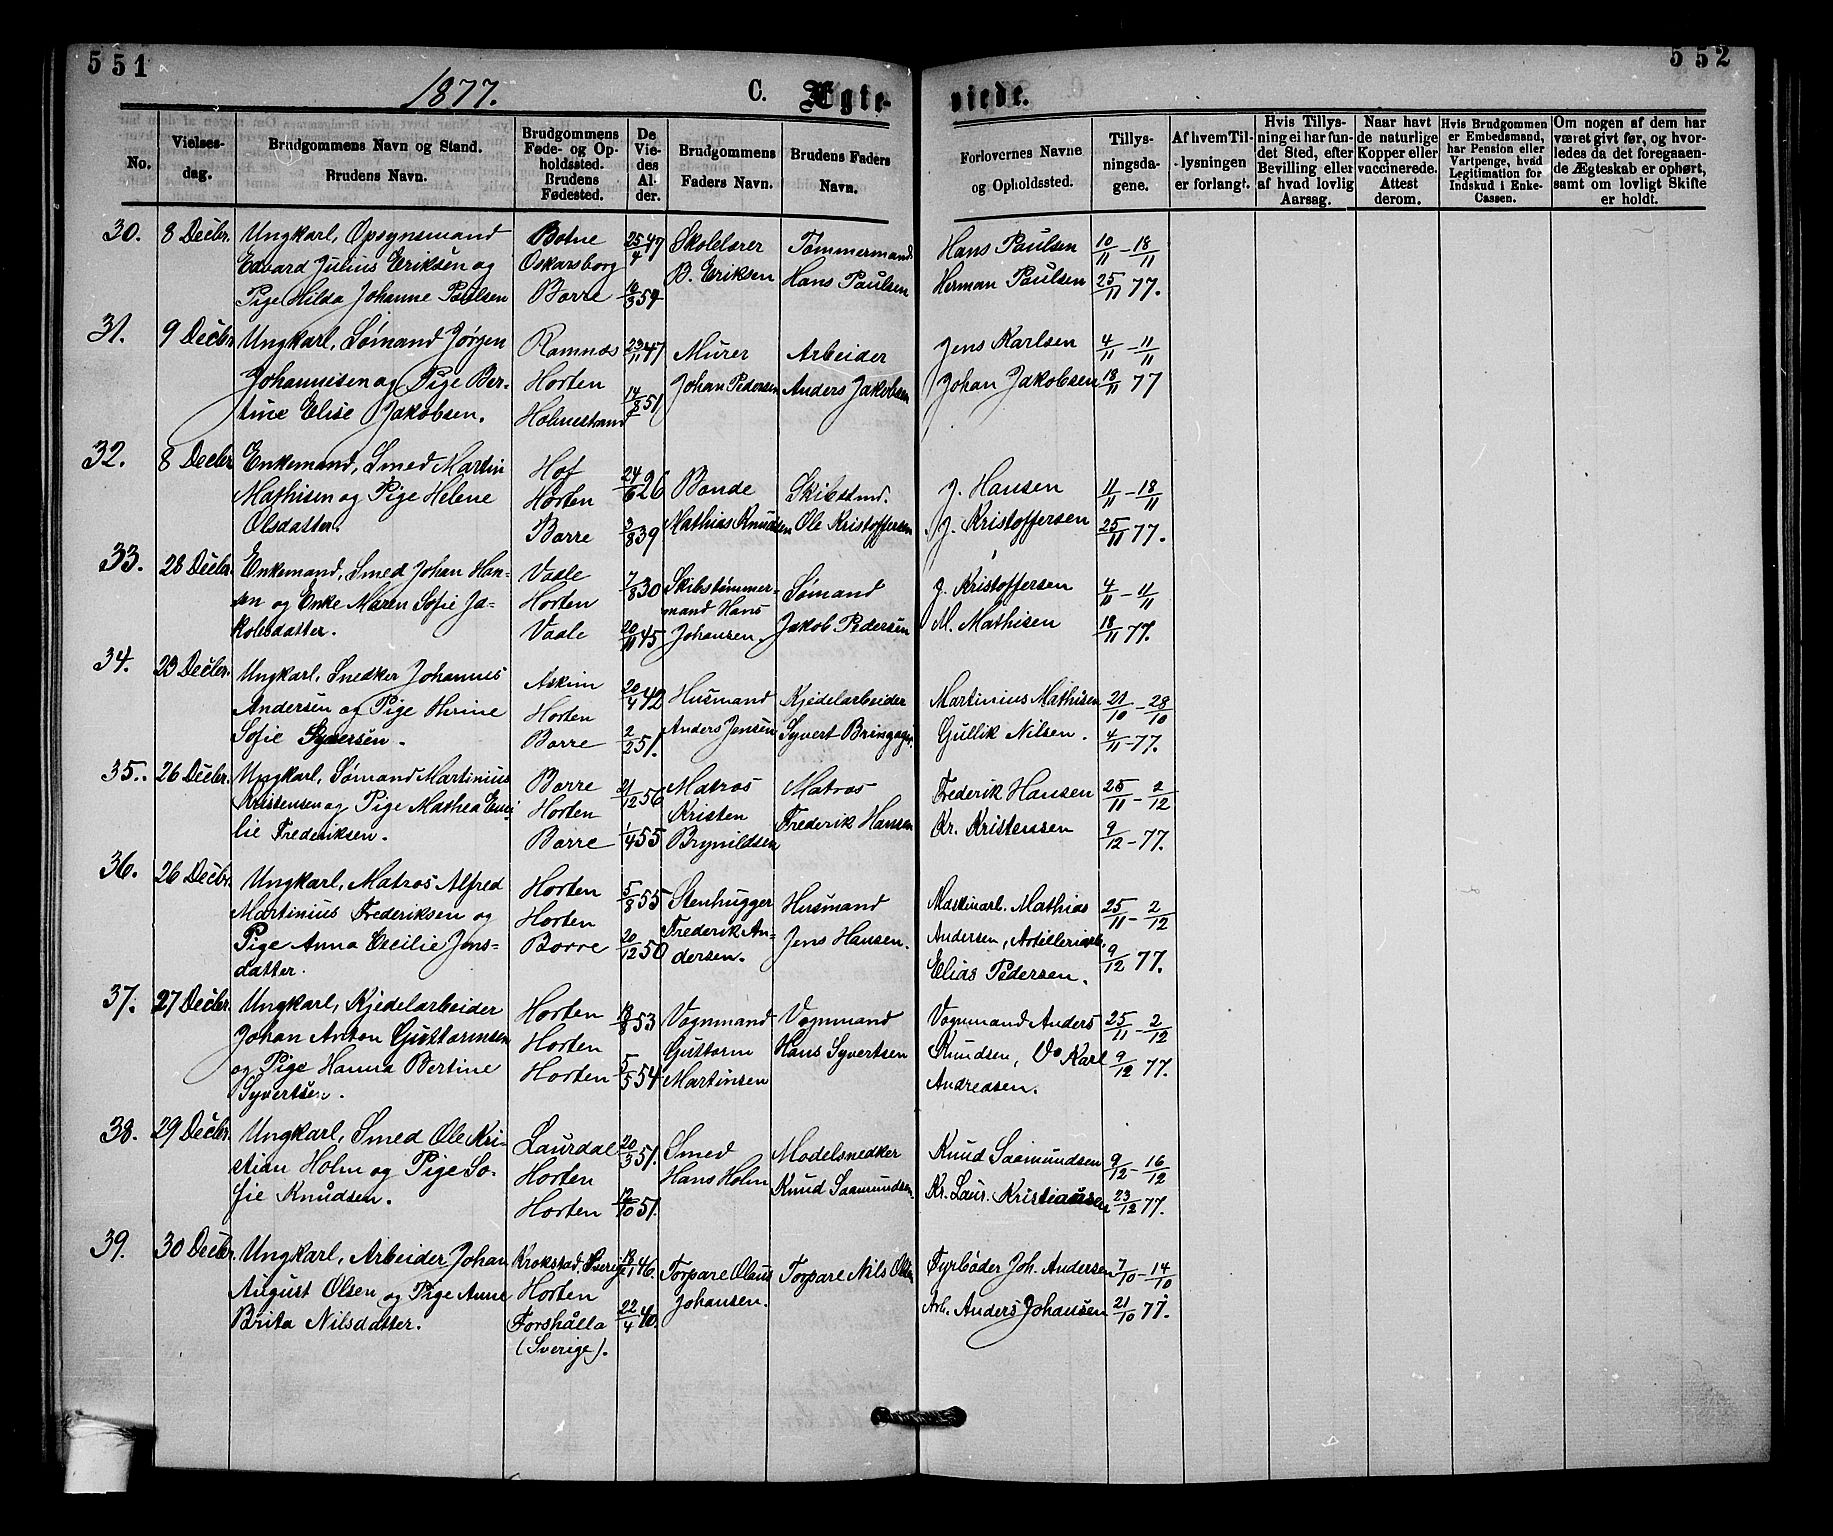 551
552
1877.
C. Ægte-
viede.
No.
Vielses-
dag.
Brudgommens Navn og Stand.
Brudens Navn.
Brudgommens
Føde- og Op-
holdssted.
Brudens
Fødested.
De
Vie-
des
Al-
der.
Brudgommens
Faders Navn.
Brudens Faders
Navn.
Forlovernes Navne
og Opholdssted.
Tillys-
ningsda-
gene.
Af hvem Til-
lysningen
er forlangt.
Hvis Tillys-
ning ei har fun-
det Sted, efter
Bevilling eller
af hvad lovlig
Aarsag.
Naar havt
de naturlige
Kopper eller
vaccinerede.
Attest
derom.
Hvis Brudgommen
er Embedsmand,
har Pension eller
Vartpenge, hvad
Legitimation for
Indskud i Enke-
Cassen.
Om nogen af dem har
været givt før, og hvor-
ledes da det foregaaen-
de Ægteskab er ophørt,
samt om lovligt Skifte
er holdt.
30. 8 Decbr. Ungkarl, Opsynsmand
Edvard Julius Eriksen og
Pige Hilda Johanne Paulsen
Botne
Oskarsborg
Borre
25/4 47
Skolelærer
B. Eriksen
Tømmermand
Hans Paulsen
Hans Paulsen
Herman Paulsen
10/11 - 18/11
25/11 77.
31. 9 Decbr Ungkarl, Sømand Jørgen
Johannisen og Pige Ber-
tine Elise Jakobsen.
Ramnæs
Horten
Holmestrand
23/11 47
14/8 51
Murer
Johan Pedersen
Arbeider
Anders Jakobsen
Jens Karlsen
Johan Jakobsen
4/11 - 11/11
18/11 77
32. 8 Decbr Enkemand, Smed Martin
Mathisen og Pige Helene
Olsdatter.
Hof
Horten
Borre
24/6 26
3/8 39
Bonde
Mathias Knudsen
Skibstmd.
Ole Kristoffersen
J. Hansen
J. Kristoffersen
11/11 - 18/11
25/11 77.
33. 28 Decbr. Enkemand, Smed Johan Han-
sen og Enke Maren Sofie Ja-
kobsdatter.
Vaale
Horten
Vaale
7/8 30
20/11 45
Skibstømmer-
mand Hans
Johansen.
Sømand
Jakob Pedersen
J. Kristoffersen
M. Mathisen
4/11 - 11/11
18/11 77.
34. 23 Decbr. Ungkarl, Snedker Johannes
Andersen og Pige Herine
Sofie Syversen.
Askim
Horten
Borre
20/4 42
2/2 51.
Husmand
Anders Jensen
Kjedelarbeider
Syvert
Martinius Mathisen
Gullik Nilsen.
21/10 - 28/10
4/11 - 77.
35. 26 Decbr. Ungkarl, Sømand Martinius
Kristensen og Pige Mathea Emi-
lie Frederiksen.
Borre
Horten
Borre
21/12 56
1/4 55
Matros
Kristen
Brynildsen
Matros
Frederik Hansen
Frederik Hansen
Kr. Kristensen
25/11 - 2/12
9/12 - 77.
36. 26 Decbr. Ungkarl, Matros Alfred
Martinius Frederiksen og
Pige Anna Cecilie Jens-
datter.
Horten
Horten
Borre
5/8 55
20/12 50
Stenhugger
Frederik An-
dersen.
Husmand
Jens Hansen.
Maskinarb. Mathias
Andersen, Artilleriarb.
Elias Pedersen.
25/11 - 2/12
9/12 77.
37. 27 Decbr. Ungkarl, Kjedelarbeider
Johan Anton Guttormsen
og Pige Hanna Bertine
Syvertsen.
Horten
Horten
Horten
18/8 53
5/5 54
Vognmand
Guttorm
Martinsen
Vognmand
Hans Syvertsen
Vognmand Anders
Knudsen, Do Karl
Andreasen.
25/11 - 2/12
9/12 77.
38. 29 Decbr. Ungkarl, Smed Ole Kri-
stian Holm og Pige So-
fie Knudsen.
Laurdal
Horten
Horten
20/3 51.
12/10 51.
Smed
Hans Holm
Modelsnedker
Knud Saamundsen.
Knud Saamundsen
Kr. Laur. Kristiansen
9/12 - 16/12
23/12 77.
39. 30 Decbr. Ungkarl, Arbeider Johan
August Olsen og Pige Anne
Brita Nilsdatter.
Krokstad, Sverige
Horten
Forshälla
(Sverige).
18/1 46.
22/4 40.
Torpare Olaus
Johansen.
Torpare Nils Olsen
Fyrbøder Joh. Andersen
Arb. Anders Johansen
7/10 - 14/10
21/10 77.